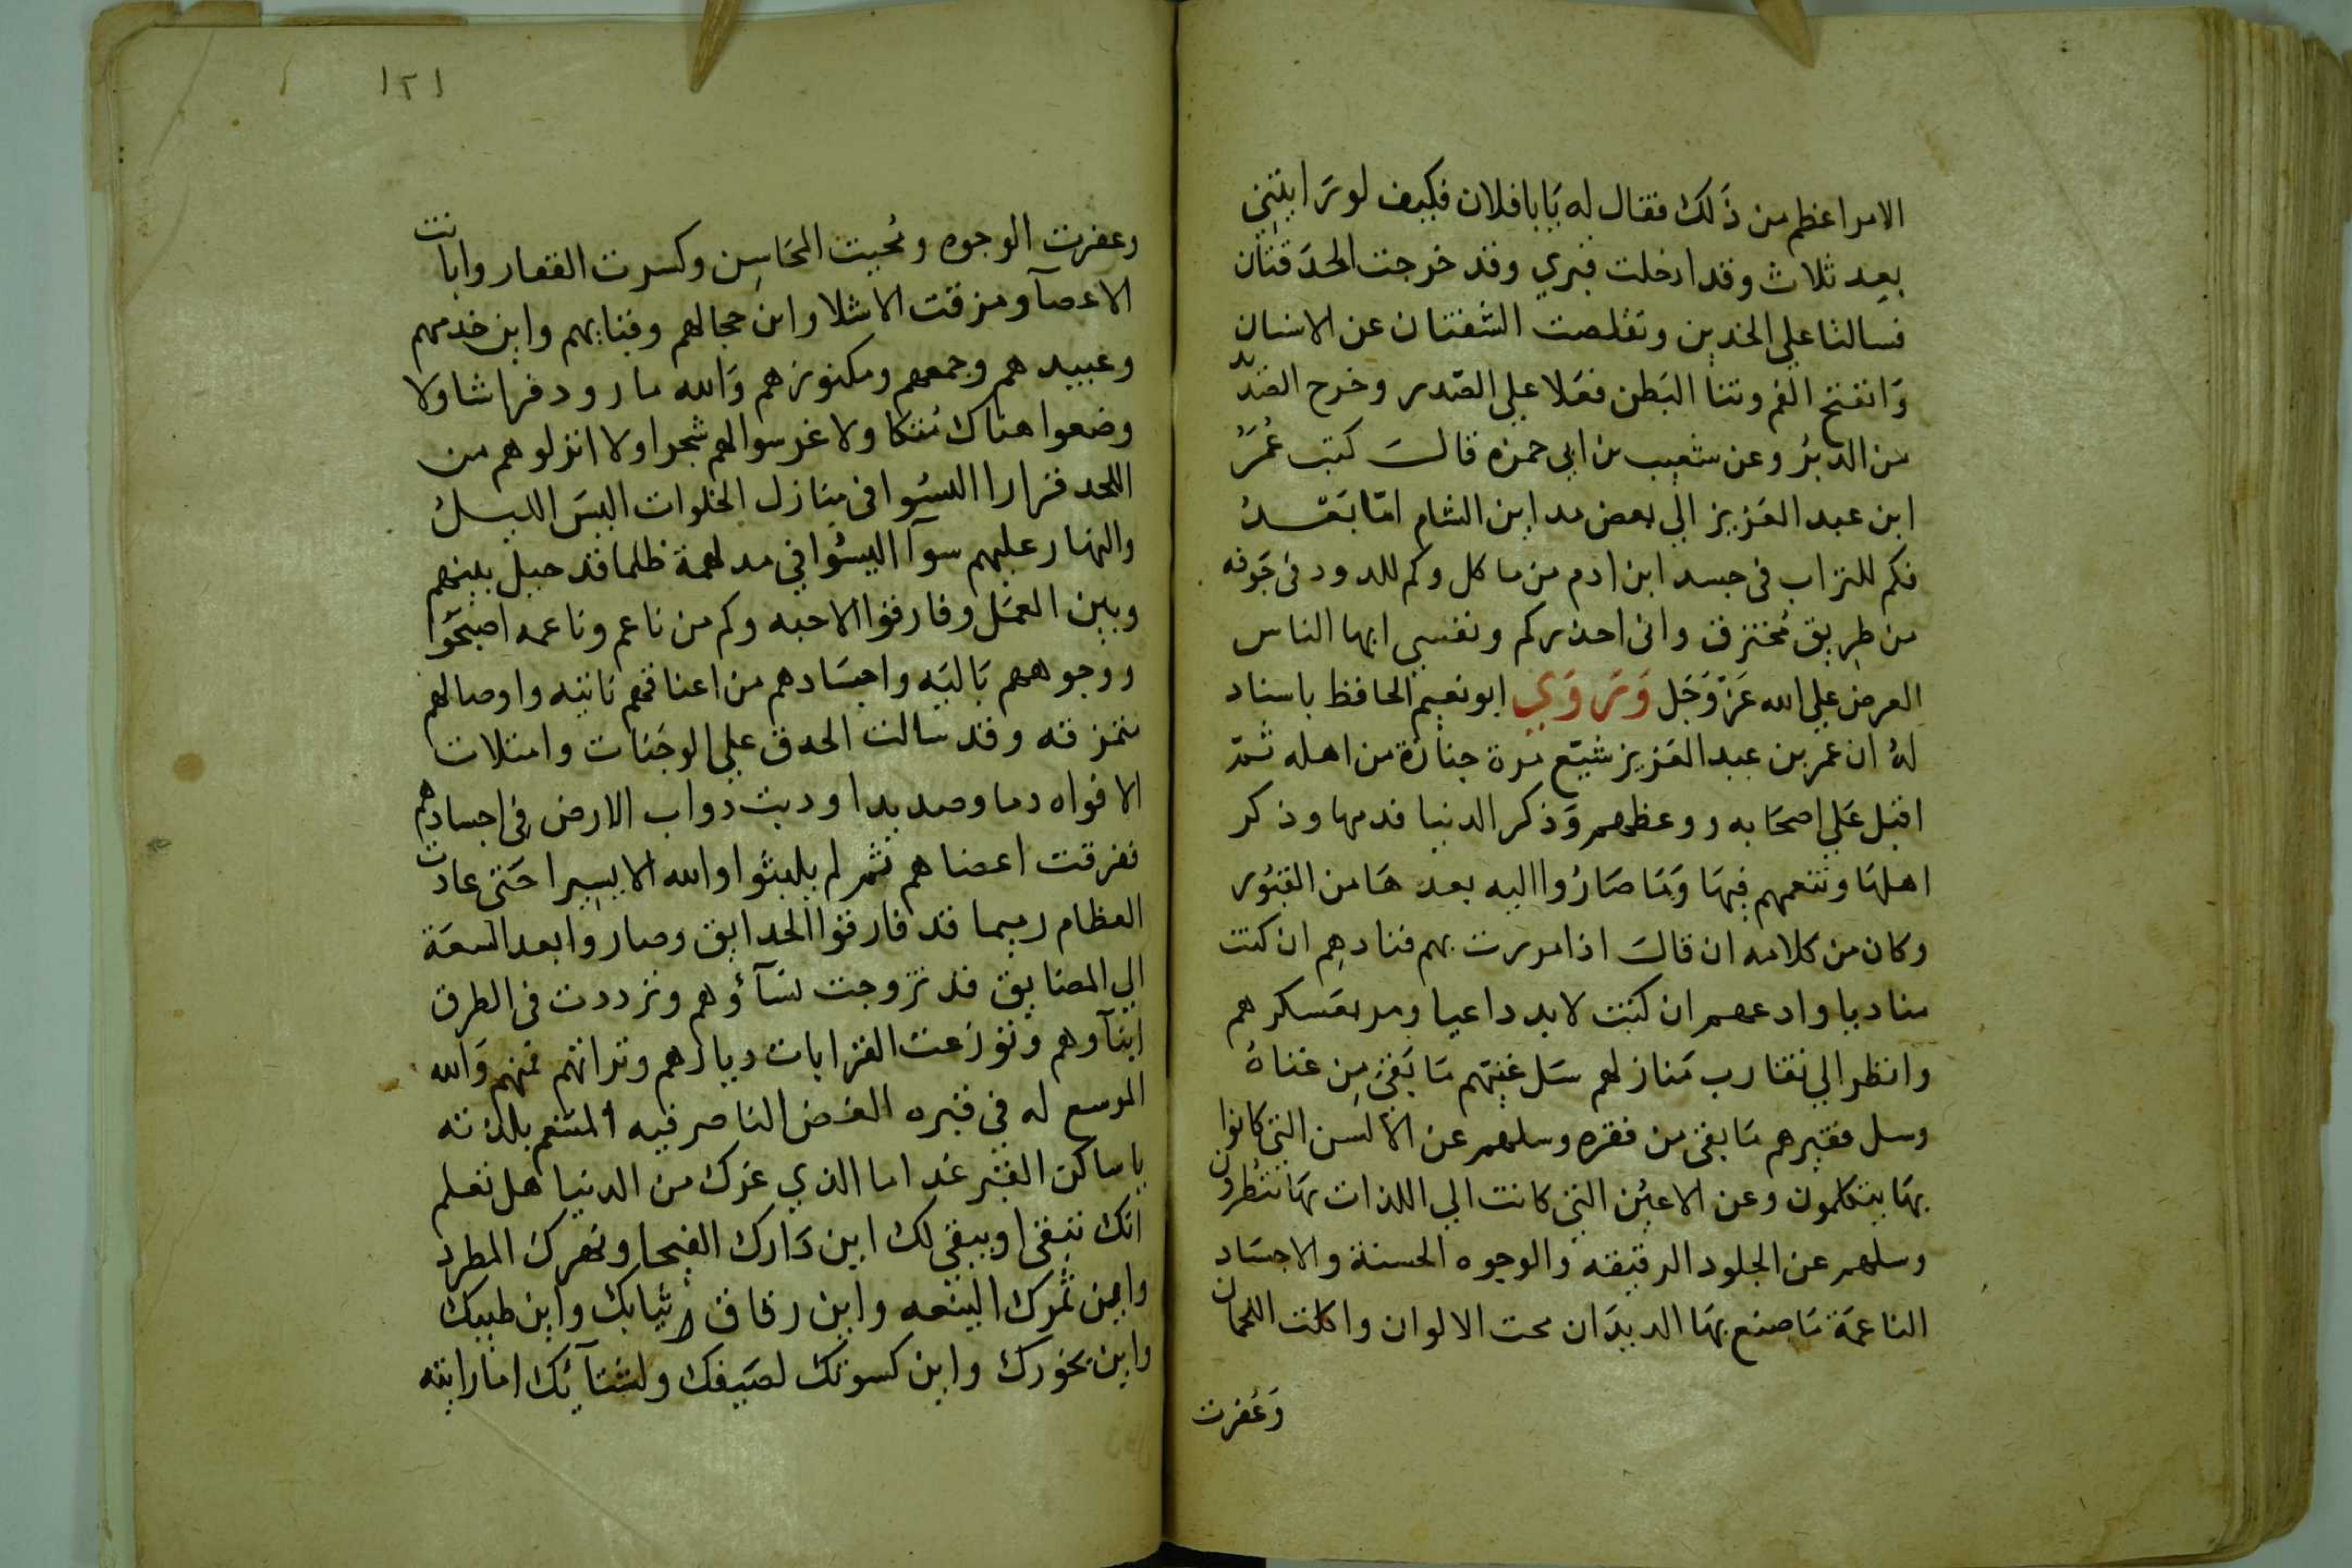 الامر اعظم من ذَلك فقال له يَا بافلان فكيف لو رَايتني
بعد ثلاث وقد ادخلت قبري وقد خرجت الحدَقتان
فسالتا علي الخدين وتقلصت الشفتان عن الاسنان
وَانفتح الفم ونتنا البَطن فعَلا علي الصّدر وخرج الصّديد
من الدبُر وعن شعيب بن ابي حمزه قالَ كتب عُمَرُ
ابن عبد العَزيز الي بعض مداين الشام امّا بَعْدُ
فكم للتراب فى جسد ابن ادم من ماكل وكم للدود فى جَوفه
من طريق مُخترق وانى احذركم ونفسي ايها الناس
العرض علي الله عَزّ وَجَل وَرَوَي ابو نعيم الحافظ باسناد
لهُ ان عمر بن عبد العَزيز شيّع مرة جنازة من اهله ثمّ
اقبل عَلي اصحَابه ووعظهم وَذكر الدنيا فدمها وذكر
اهلهَا وتنعمهم فِيهَا وَمَا صَارُوا اليه بعدهَا من القبُور
وكان من كلامه ان قالَ اذا مررت بهم فنادهِم ان كنت
مناديا وادعهم ان كنت لا بد داعيا ومر بعَسكرهم
وانظر الي تقارب مَنازلهم سَل غنيّهم مَا بَقىَ مِن غناهُ
وسل فقيرهم مَا بقى من فقره وسلهم عن الالسن التى كانوا
بهَا يتكلمون وعن الاعيُن التى كانت الي اللذات بهَا ينظرون
وسلهم عن الجلود الرقيقه والوجوه الحسنة والاجسَاد
الناعمَة مَا صنع بهَا الديدَان محت الالوان واكلت اللحمان
وَعُفرت
١٢١
وعفرت الوجوه ومُحيت المحَاسِن وكسرت الفقار وابانت
الاعصآ ومزقت الاشلا واين حجالهم وقبابهم واين خدمهم
وعبيدهم وجمعهم ومكنوزهم وَالله ما رود فراشا ولا
وضعوا هناك مُتكا ولا غرسوا لهم شجرا ولا انزلوهم من
اللحد قرارا اليسُوا فى منازل الخلوات اليسَ الليل
والنهار عليهم سوآ اليسُوا في مدلهمة ظلما قد حيل بينهم
وبين العمَل وفارقوا الاحبه وكم من ناعم وناعمه اصبَحُوا
ووجوههم بَاليَه واجسَادهم من اعناقهم نائيه واوصالهم
متمزقه وقد سَالت الحدق علي الوجَنات وامتلات
الافواه دما وصديدا ودبت دواب الارض فى اجسادهم
تفرقت اعضاهم ثم لم يلبثوا والله الا يسيرا حَتى عادت
العظام رميما قد فارقوا الحدايق وصاروا بعد السعَة
الي المضايق قد تزوجت نسَآؤهم وترددت فى الطرق
ابنآوهم وتوزعت القرابات ديارهم وتراثهم فمنهم وَالله
الموسع له في قبره الغض الناضر فيه المتنعم بلذته
يا ساكن القبر غدا ما الذي غرك من الدنيا هل تعلم
انك تبقى او يبقى لك اين دَارك الفيحا ونهرك المطرد
واين ثمرك الينعه واين رقاق ثيابك واين طيبك
واين بخورك واين كسوتك لصَيفك ولشتآئك امَا رايته